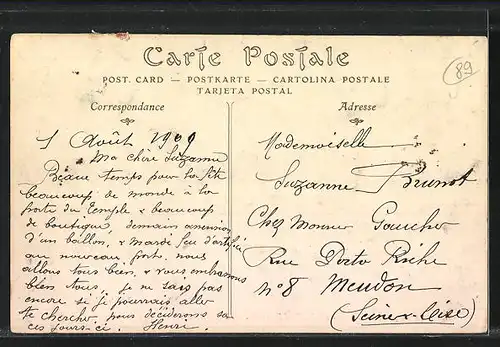 Carte Postale
89
POST. CARD — POSTKARTE — CARTOLINA POSTALE
TARJETA POSTAL
Correspondance
1 Août 1909
Ma chère Suzanne
Beau temps pour la fête
beaucoup de monde à la
porte du temple & beaucoup
de boutique, demain ascension
d'un ballon, & mardi feu d'artifice
au nouveau port, nous
allons tous bien, & vous embrassons
bien tous, je ne sais pas
encore si je pourrais aller
te chercher, nous déciderons sa
ces jours-ci. Henri.
Adresse
Mademoiselle
Suzanne Brunot
Chez Monsieur Goucher
Rue Porto Riche
n° 8 Meudon
(Seine & Oise)